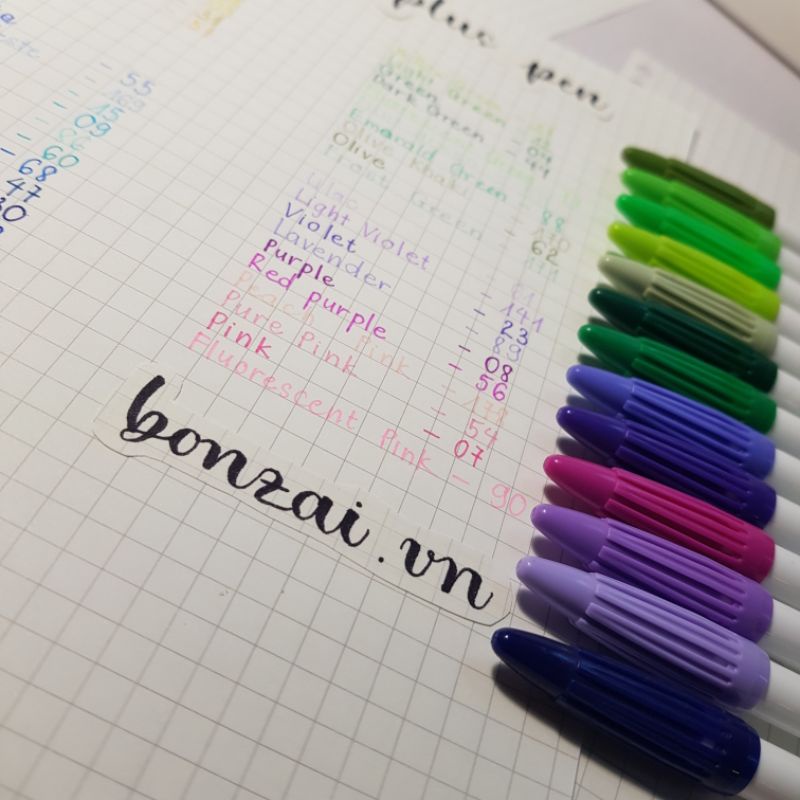 plus pen
- 55
- 15
- 09
- 60
- 68
47
Light Green
Green
Dark Green
Emerald Green - 88
Olive Khaki
Olive - 62
Frost Green
Lilac
Light Violet - 141
Violet - 23
Lavender - 89
Purple - 08
Red purple - 56
Peach Pink
Pure Pink - 54
Pink - 07
Fluorescent Pink - 90
bonzai.vn